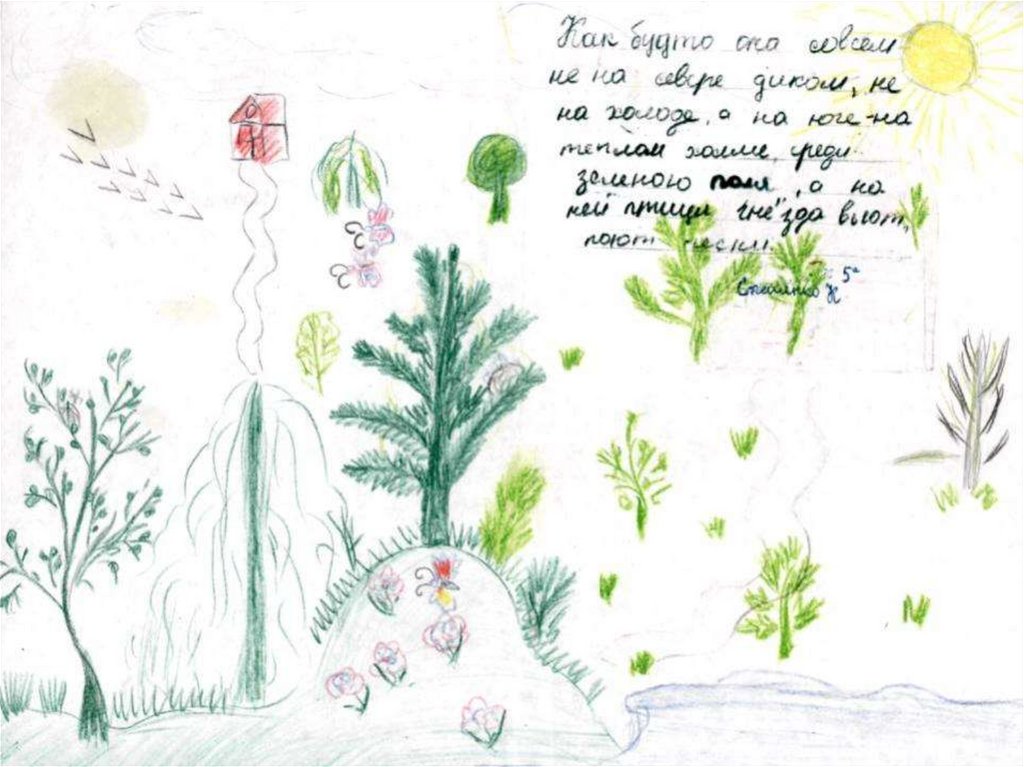 Как будто она совсем
не на севере диком, не
на холоде, а на юге-на
теплом холме, среди
зеленою поля, а на
ней птицы гнёзда вьют,
поют песни.
5а